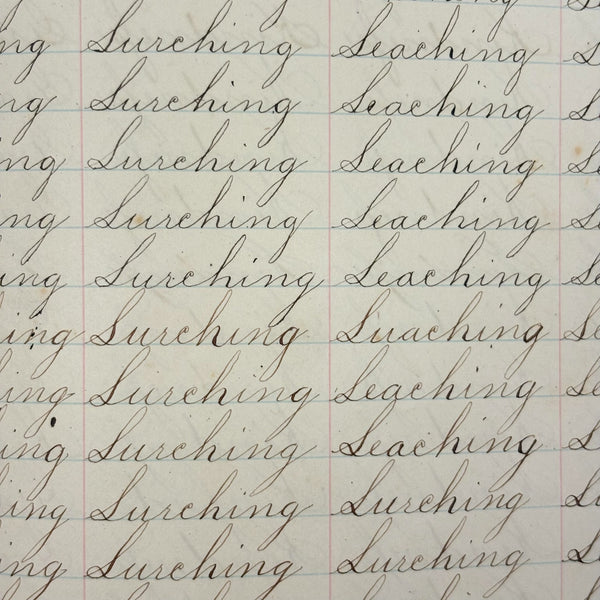 Lurching Leaching
Lurching Leaching
Lurching Leaching
Lurching Leaching
Lurching Leaching
Lurching Luaching
Lurching Leaching
Lurching Leaching
Lurching Lurching
Lurching Lurching